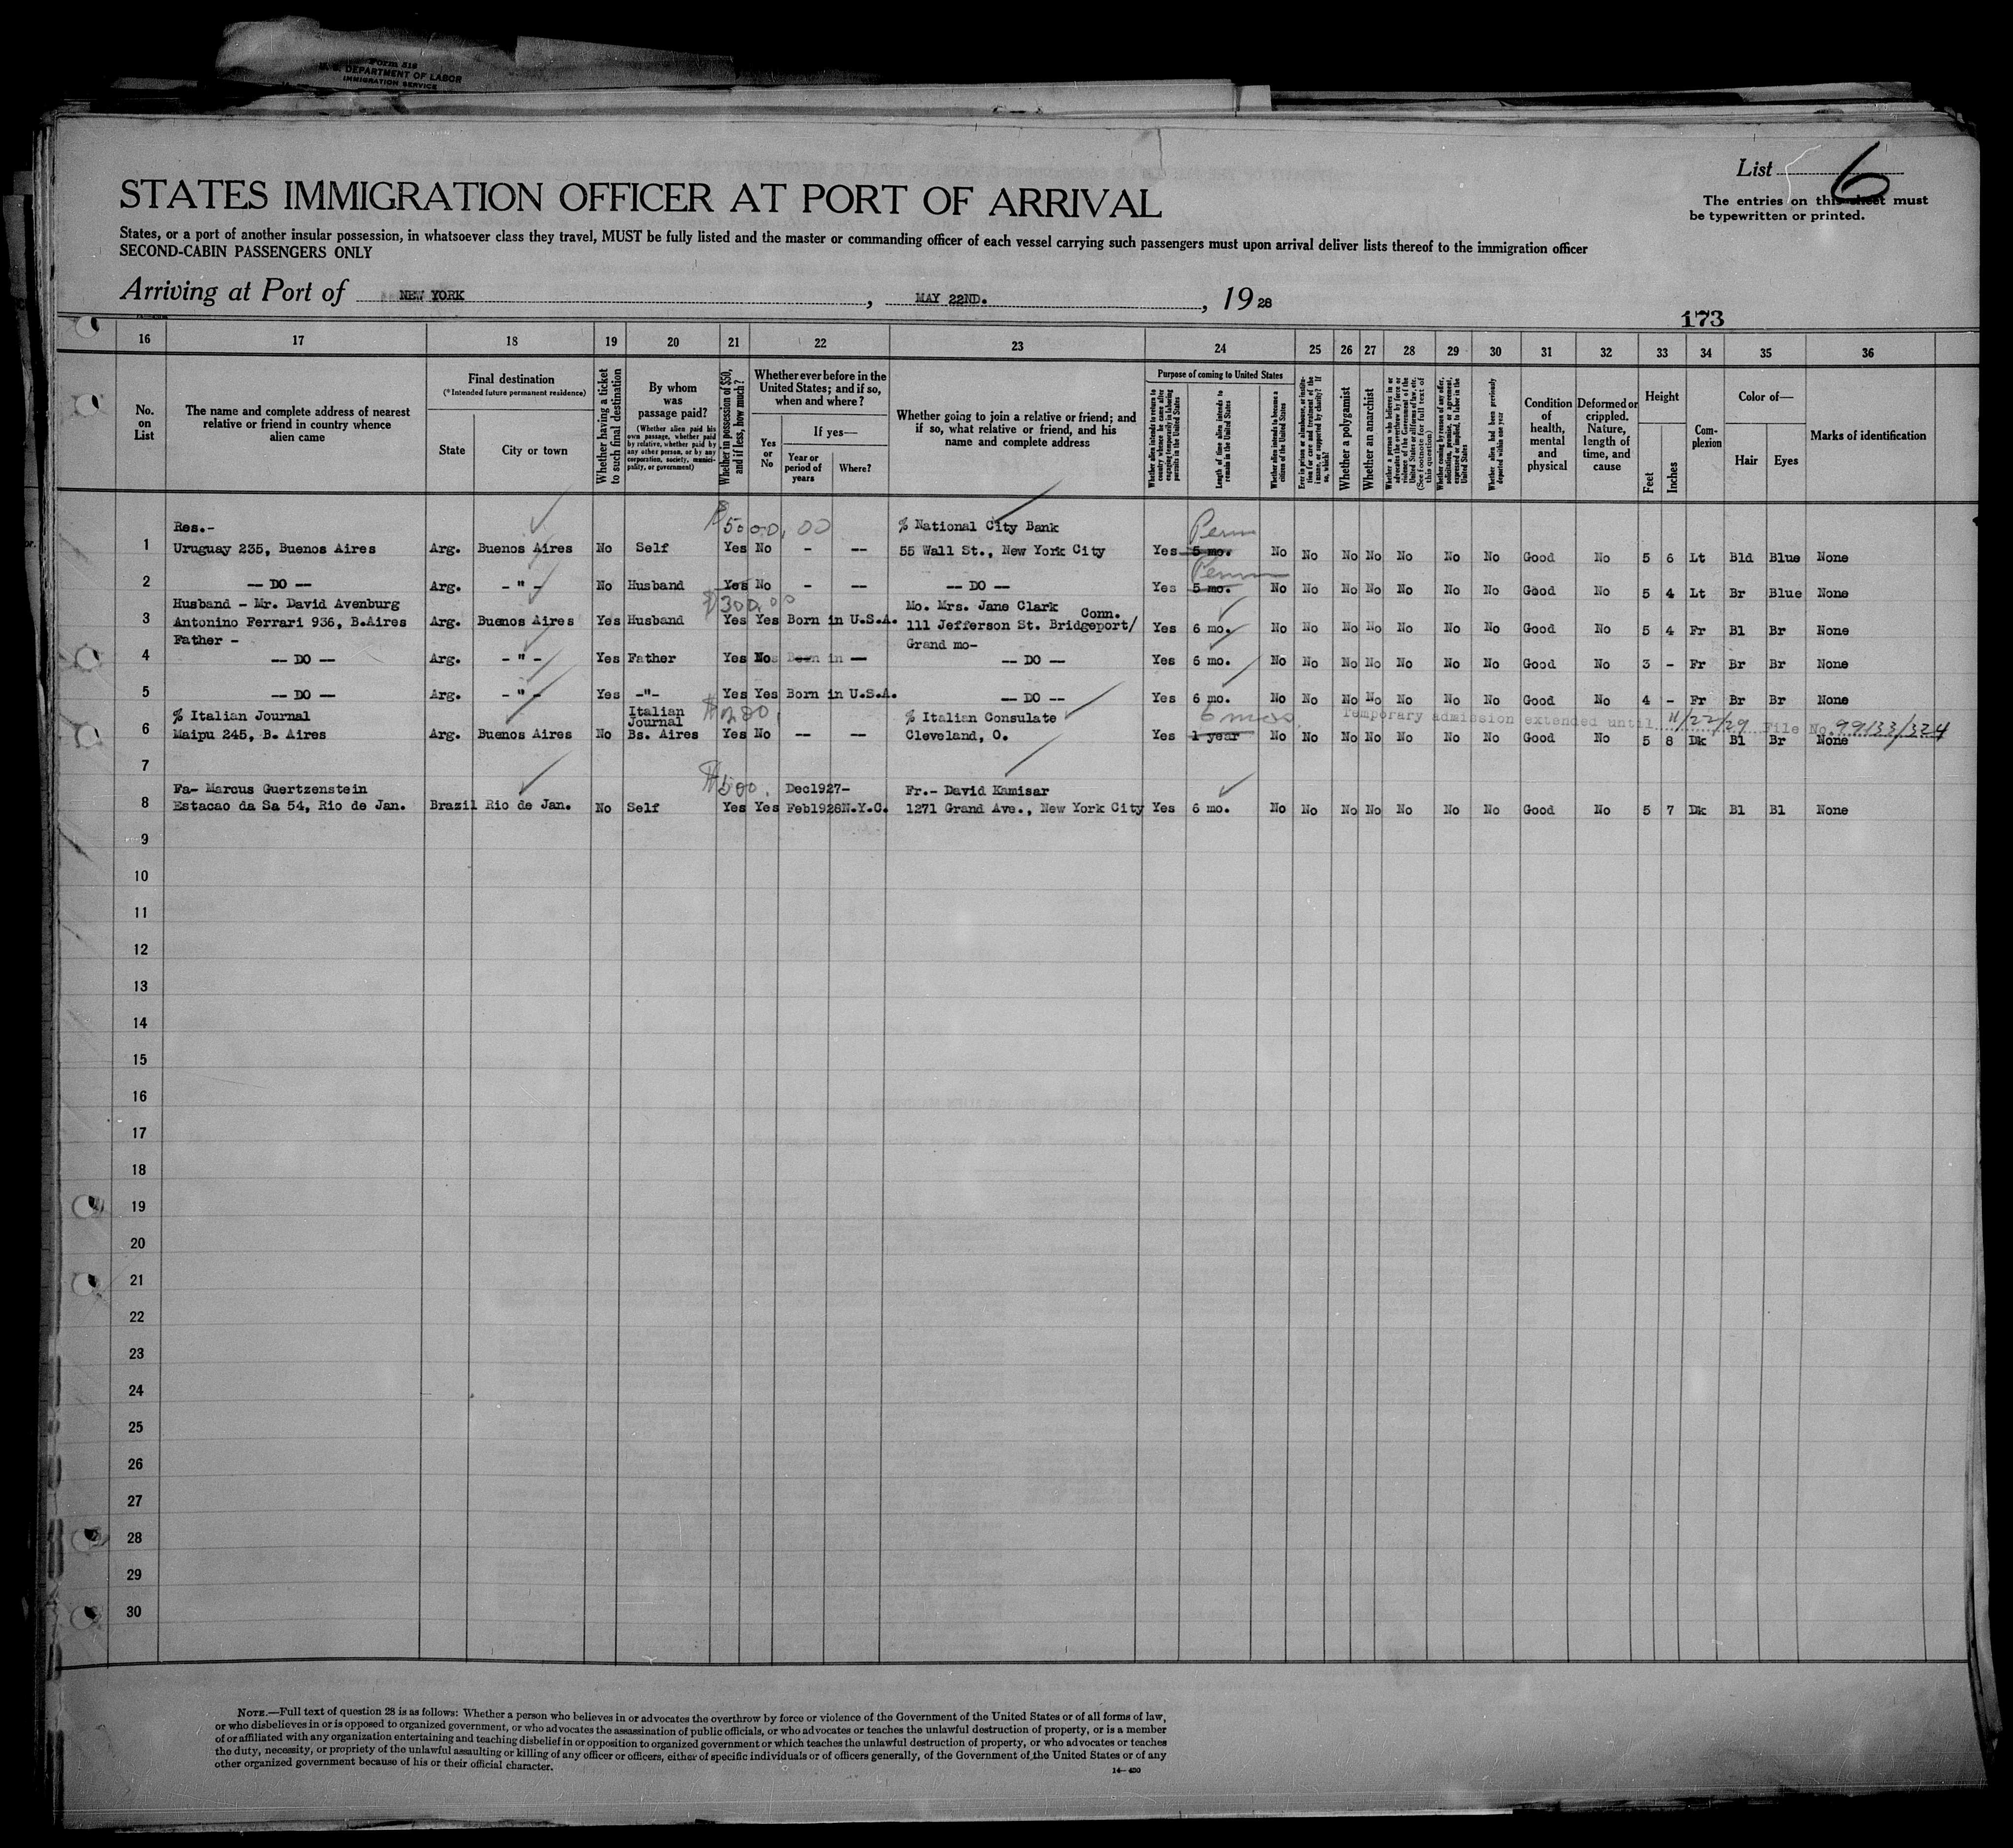 Form 518
U. S. DEPARTMENT OF LABOR
IMMIGRATION SERVICE
List 6
The entries on this sheet must
be typewritten or printed.
STATES IMMIGRATION OFFICER AT PORT OF ARRIVAL
States, or a port of another insular possession, in whatsoever class they travel, MUST be fully listed and the master or commanding officer of each vessel carrying such passengers must upon arrival deliver lists thereof to the immigration officer
SECOND-CABIN PASSENGERS ONLY
Arriving at Port of NEW YORK, MAY 22ND., 1928
173
16 17 18 19 20 21 22 23 24 25 26 27 28 29 30 31 32 33 34 35 36
No. on List
The name and complete address of nearest relative or friend in country whence alien came
Final destination
(*Intended future permanent residence)
State
City or town
Whether having a ticket to such final destination
By whom was passage paid?
(Whether alien paid his own passage, whether paid by relative, whether paid by any other person, or by any corporation, society, municipality, or government)
Whether in possession of $50, and if less, how much?
Whether ever before in the United States; and if so, when and where?
Yes or No
If yes—
Year or period of years
Where?
Whether going to join a relative or friend; and if so, what relative or friend, and his name and complete address
Purpose of coming to United States
Whether alien intends to return to country whence he came after engaging temporarily in laboring pursuits in the United States
Length of time alien intends to remain in the United States
Whether alien intends to become a citizen of the United States
Ever in prison or almshouse, or institution for care and treatment of the insane, or supported by charity? If so, which?
Whether a polygamist
Whether an anarchist
Whether a person who believes in or advocates the overthrow by force or violence of the Government of the United States or all forms of law, etc. (See footnote for full text of this question)
Whether coming by reason of any offer, solicitation, promise, or agreement, expressed or implied, to labor in the United States
Whether alien had been previously deported within one year
Condition of health, mental and physical
Deformed or crippled. Nature, length of time, and cause
Height
Feet
Inches
Complexion
Color of—
Hair
Eyes
Marks of identification
Res.- $5000.00 % National City Bank Perm
1 Uruguay 235, Buenos Aires Arg. Buenos Aires No Self Yes No - -- 55 Wall St., New York City Yes 5 mo. No No No No No No No Good No 5 6 Lt Bld Blue None
Perm
2 -- DO -- Arg. - " - No Husband Yes No - -- -- DO -- Yes 5 mo. No No No No No No No Good No 5 4 Lt Br Blue None
Husband - Mr. David Avenburg $300.00 Mo. Mrs. Jane Clark Conn.
3 Antonino Ferrari 936, B.Aires Arg. Buenos Aires Yes Husband Yes Yes Born in U.S.A. 111 Jefferson St. Bridgeport/ Yes 6 mo. No No No No No No No Good No 5 4 Fr Bl Br None
Father - Grand mo-
4 -- DO -- Arg. - " - Yes Father Yes No in -- -- DO -- Yes 6 mo. No No No No No No No Good No 3 - Fr Br Br None
5 -- DO -- Arg. - " - Yes -"- Yes Yes Born in U.S.A. -- DO -- Yes 6 mo. No No No No No No No Good No 4 - Fr Br Br None
% Italian Journal Italian Journal % Italian Consulate 6 mos. Temporary admission extended until 11/22/29 File No. 99133/324
6 Maipu 245, B. Aires Arg. Buenos Aires No Bs. Aires Yes No -- -- Cleveland, O. Yes 1 year No No No No No No No Good No 5 8 Dk Bl Br None
7
Fa- Marcus Guertzenstein $500. Dec1927- Fr.- David Kamisar
8 Estacao da Sa 54, Rio de Jan. Brazil Rio de Jan. No Self Yes Yes Feb1928 N.Y.C. 1271 Grand Ave., New York City Yes 6 mo. No No No No No No No Good No 5 7 Dk Bl Bl None
9
10
11
12
13
14
15
16
17
18
19
20
21
22
23
24
25
26
27
28
29
30
NOTE.—Full text of question 28 is as follows: Whether a person who believes in or advocates the overthrow by force or violence of the Government of the United States or of all forms of law,
or who disbelieves in or is opposed to organized government, or who advocates the assassination of public officials, or who advocates or teaches the unlawful destruction of property, or is a member
of or affiliated with any organization entertaining and teaching disbelief in or opposition to organized government or which teaches the unlawful destruction of property, or who advocates or teaches
the duty, necessity, or propriety of the unlawful assaulting or killing of any officer or officers, either of specific individuals or of officers generally, of the Government of the United States or of any
other organized government because of his or their official character.
14—430